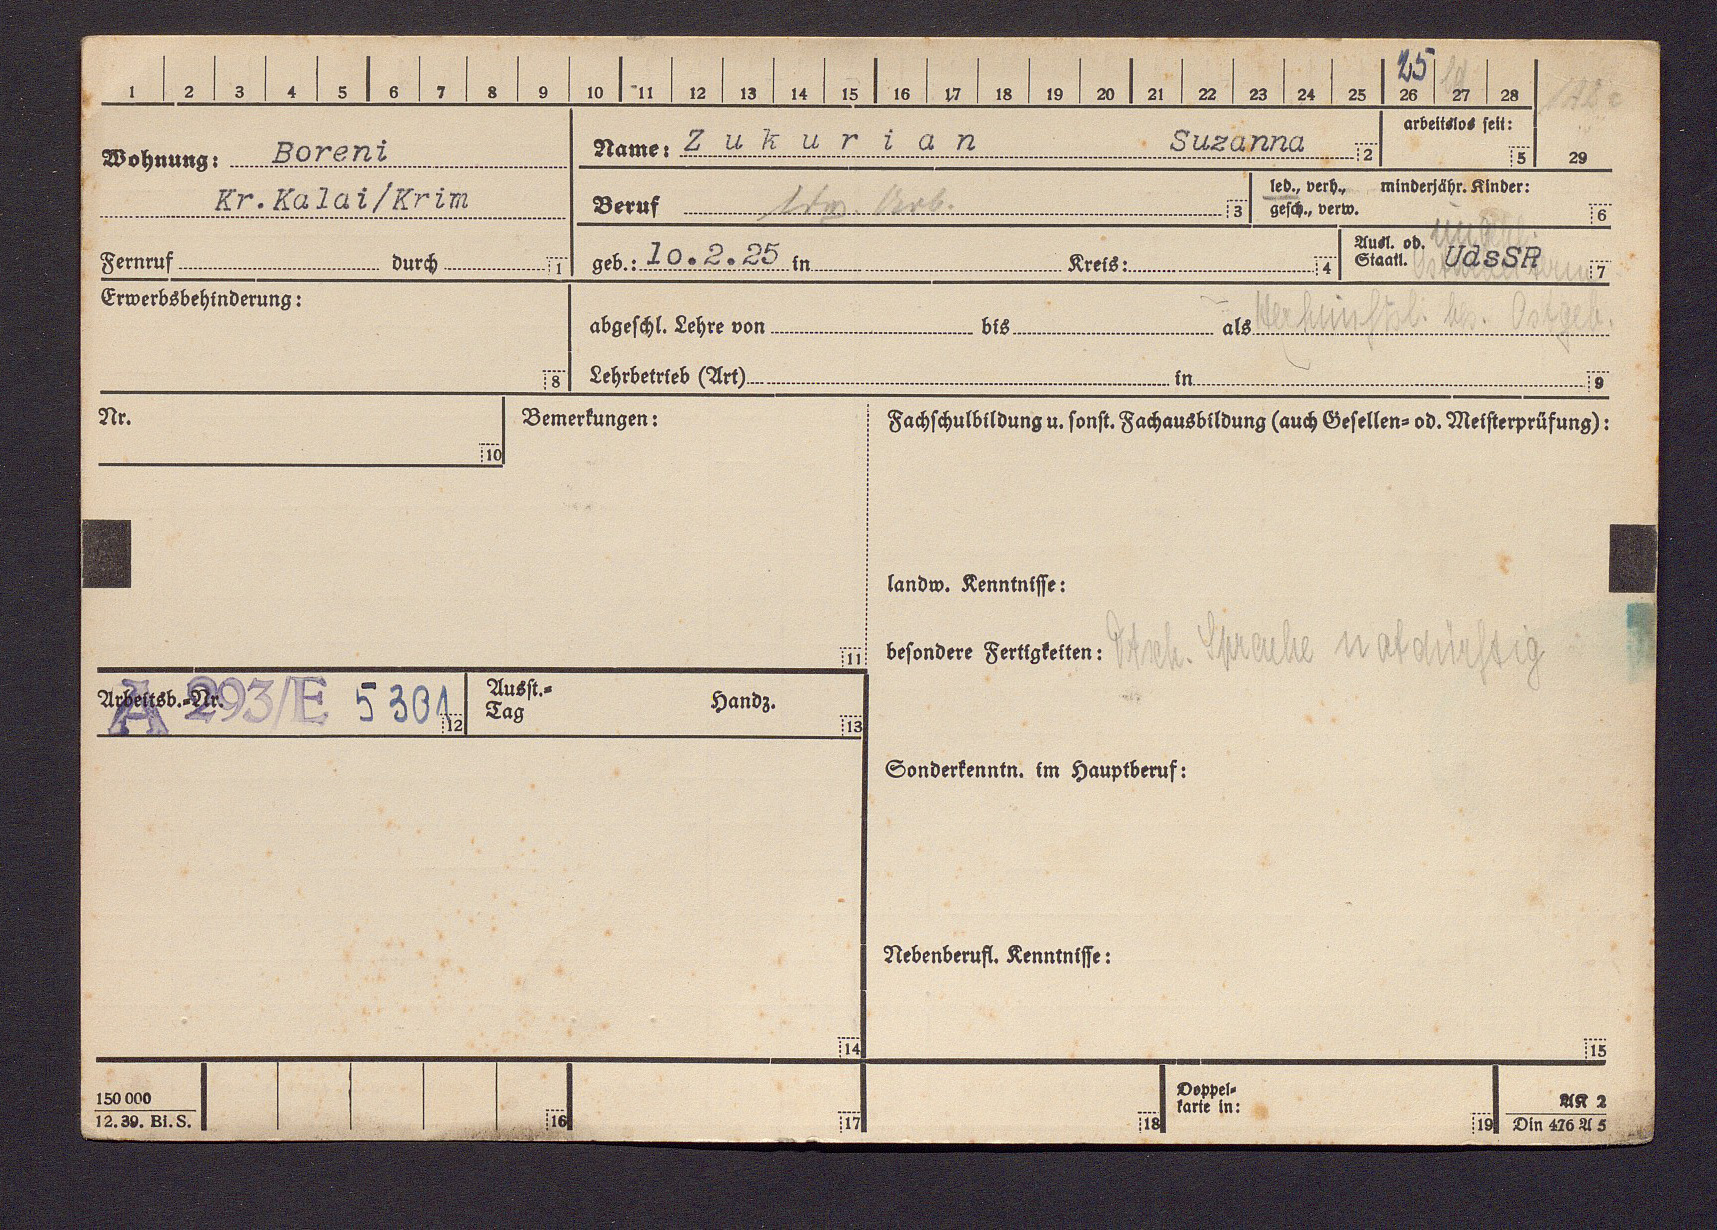 1 2 3 4 5 6 7 8 9 10 11 12 13 14 15 16 17 18 19 20 21 22 23 24 25 26 27 28 29
25
Wohnung: Boreni
Kr.Kalai/Krim
Fernruf durch 1
Name: Zukurian Suzanna 2
arbeitslos seit: 5
Beruf ldw. Arb. 3
led., verh., minderjähr. Kinder:
gesch., verw. 6
geb.: 10.2.25 in Kreis: 4
Ausl. od.
Staatl. UdSSR 7
Erwerbsbehinderung: 8
abgeschl. Lehre von bis als
Herkunftsl. bes. Ostgeb.
Lehrbetrieb (Art) in 9
Nr. 10
Bemerkungen: 11
Fachschulbildung u. sonst. Fachausbildung (auch Gesellen- od. Meisterprüfung):
landw. Kenntnisse:
besondere Fertigkeiten: Dtsch. Sprache notdürftig
Arbeitsb.-Nr. A 293/E 5301 12
Ausst.-
Tag Handz. 13
Sonderkenntn. im Hauptberuf:
Nebenberufl. Kenntnisse:
14 15
150 000
12. 39. Bi. S.
16 17 18
Doppel-
karte in: 19
AK 2
Din 476 A 5